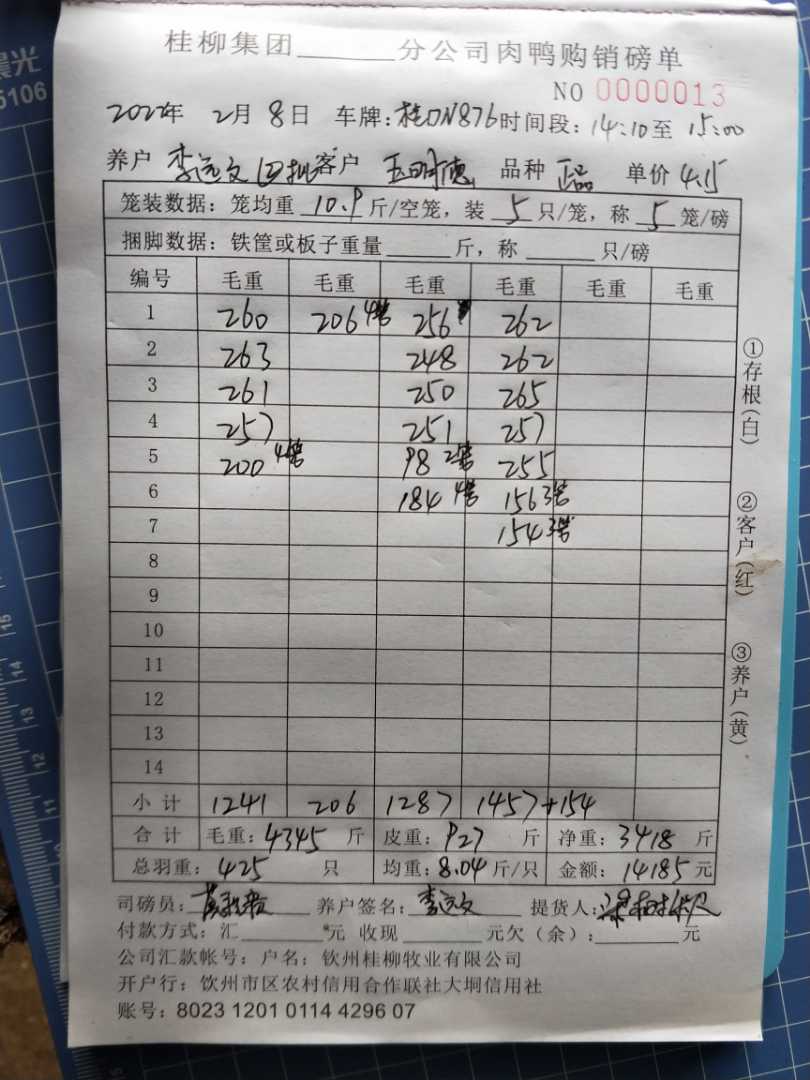 晨光
5106
桂柳集团______分公司肉鸭购销磅单
NO 0000013
2022年 2月 8日 车牌:桂DN876时间段:14:10至 15:00
养户 李远文四批客户 玉明德 品种 正品 单价 4.15
笼装数据:笼均重 10.9 斤/空笼,装 5 只/笼,称 5 笼/磅
捆脚数据:铁筐或板子重量______斤,称______只/磅
编号 毛重 毛重 毛重 毛重 毛重 毛重
1 260 206 4笼 256 262
2 263 248 262
3 261 250 265
4 257 251 257
5 200 4笼 98 2笼 255
6 184 4笼 156 3笼
7 154 3笼
8
9
10
11
12
13
14
小计 1241 206 1287 1457+154
合计 毛重:4345 斤 皮重:927 斤 净重:3418 斤
总羽重:425 只 均重:8.04斤/只 金额:14185元
司磅员: 养户签名:李远文 提货人:
付款方式:汇______元 收现______元欠(余):______元
公司汇款帐号:户名:钦州桂柳牧业有限公司
开户行:钦州市区农村信用合作联社大垌信用社
账号:8023 1201 0114 4296 07
①存根(白)
②客户(红)
③养户(黄)
15
14
13
12
11